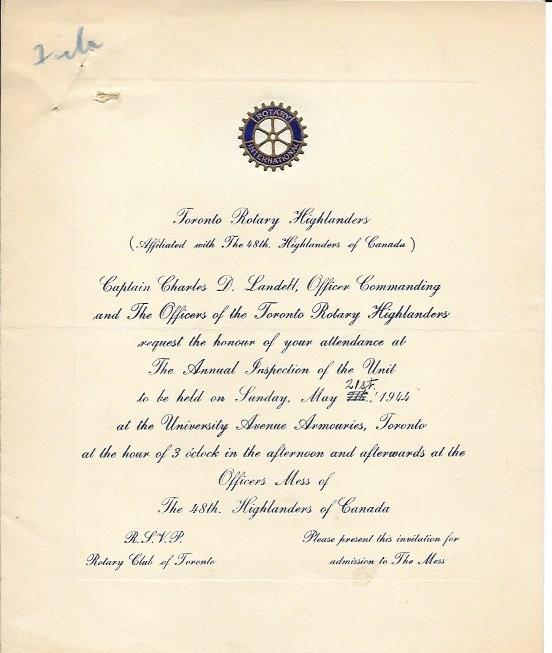 ROTARY
INTERNATIONAL
Toronto Rotary Highlanders
(Affiliated with The 48th. Highlanders of Canada)
Captain Charles D. Landell, Officer Commanding
and The Officers of the Toronto Rotary Highlanders
request the honour of your attendance at
The Annual Inspection of the Unit
21st.
to be held on Sunday, May 1944
at the University Avenue Armouries, Toronto
at the hour of 3 óclock in the afternoon and afterwards at the
Officers Mess of
The 48th. Highlanders of Canada
R.S.V.P.
Rotary Club of Toronto
Please present this invitation for
admission to The Mess